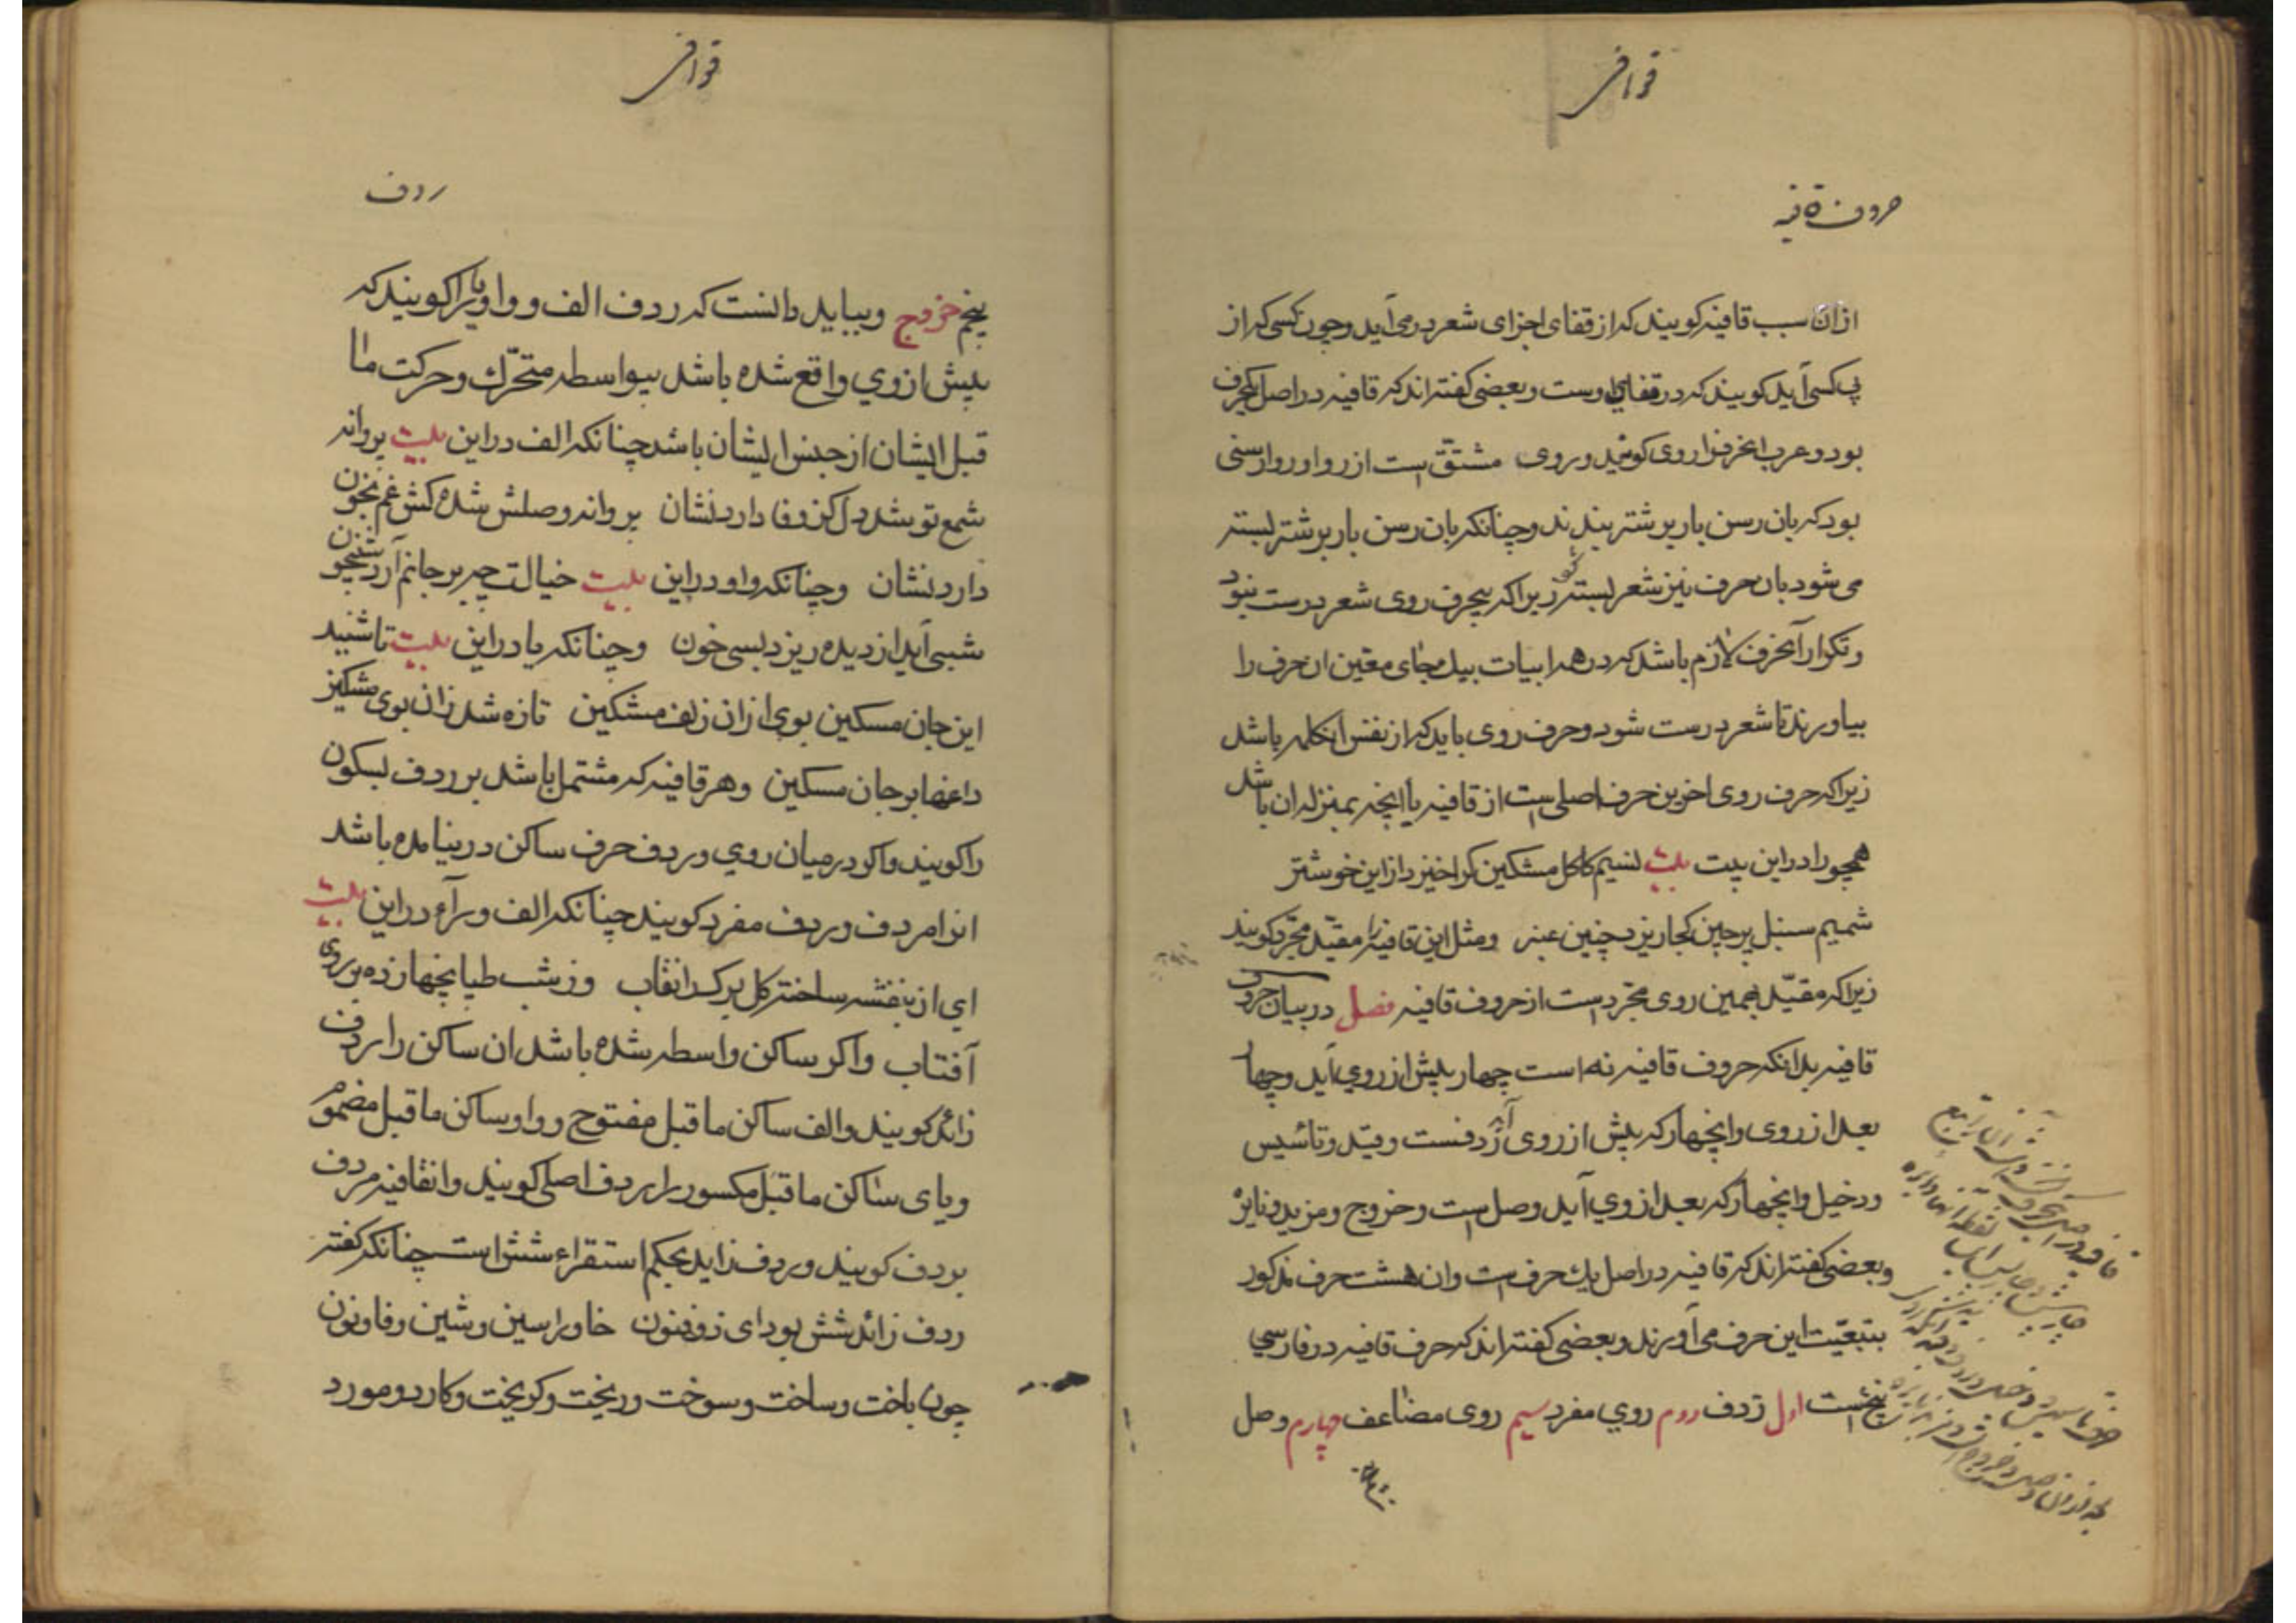 قوافی
حروف قافیه
از ان سبب قافیه کویند که از قفای اجزای شعر درمی آید و چون کسی که از
پی کسی آید کویند که در قفای اوست و بعضی کفته اند که قافیه در اصل یکحرف
بود و عرب انحرف را روی کویند و روی مشتق است از روا و روا رسنی
بود که بان رسن بار بر شتر بندند و چنانکه بان رسن بار بر شتر بسته
می شود بان حرف نیز شعر بسته شود زیراکه بیحرف روی شعر درست نبود
و تکرار آنحرف لازم باشد که در همه ابیات بیک جای معین ان حرف را
بیاورند تا شعر درست شود و حرف روی باید که از نفس انکلمه باشد
زیراکه حرف روی اخرین حرف اصلی است از قافیه یا انچه بمنزله ان باشد
همچو را در این بیت بیت نسیم کاکل مشکین کرا خیزد ازاین خوشتر
شمیم سنبل پرچین کجا ریزد چنین عنبر و مثل این قافیه را مقید مجرد کویند
زیراکه مقید بهمین روی مجرد است از حروف قافیه فصل در بیان حروف
قافیه بدانکه حروف قافیه نه است چهار پیش از روی آید و چهار
بعد از روی و انچهار که پیش از روی آید ردفست و قید و تأسیس
و دخیل و انچهار که بعد از روی آید وصل است و خروج و مزید و نایره
و بعضی کفته اند که قافیه در اصل یک حرف است و ان هشت حرف مذکور
بتبعیت این حرف می آورند و بعضی کفته اند که حرف قافیه در فارسی
پنج است اول ردف دوم روی مفرد سیم روی مضاعف چهارم وصل
قوافی
ردف
پنجم خروج و بباید دانست که ردف الف و واو و یا را کویند که
پیش از روی واقع شده باشد بیواسطه متحرک و حرکت ما
قبل ایشان از جنس ایشان باشد چنانکه الف در این بیت پروانه
شمع تو شد دل کز وفا دارد نشان پروانه وصلش شده کش غم بخون
دارد نشان و چنانکه واو در این بیت خیالت چیر بر جانم آرد شبیخون
شبی آید از دیده ریزد بسی خون و چنانکه یا در این بیت تا شنید
این جان مسکین بوی از ان زلف مشکین تازه شد زان بوی مشکین
داغها بر جان مسکین و هر قافیه که مشتمل باشد بر ردف بسکون
را کویند و اکر در میان روی و ردف حرف ساکن در نیامده باشد
انرا مردف و ردف مفرد کویند چنانکه الف و رآء در این بیت
ای از بنفشه ساخته کل برک را نقاب وز شب طپانچها زده بر روی
آفتاب و اکر ساکن واسطه شده باشد ان ساکن را ردف
زائد کویند و الف ساکن ما قبل مفتوح و واو ساکن ما قبل مضموم
و یای ساکن ما قبل مکسور را ردف اصلی کویند و انقافیه مردف
بردف کویند و ردف زاید بحکم استقراء شش است چنانکه کفته
ردف زائد شش بود ای ذوفنون خا و را سین و شین و فا و نون
چون باخت و ساخت و سوخت و ریخت و کریخت و کارد و مورد